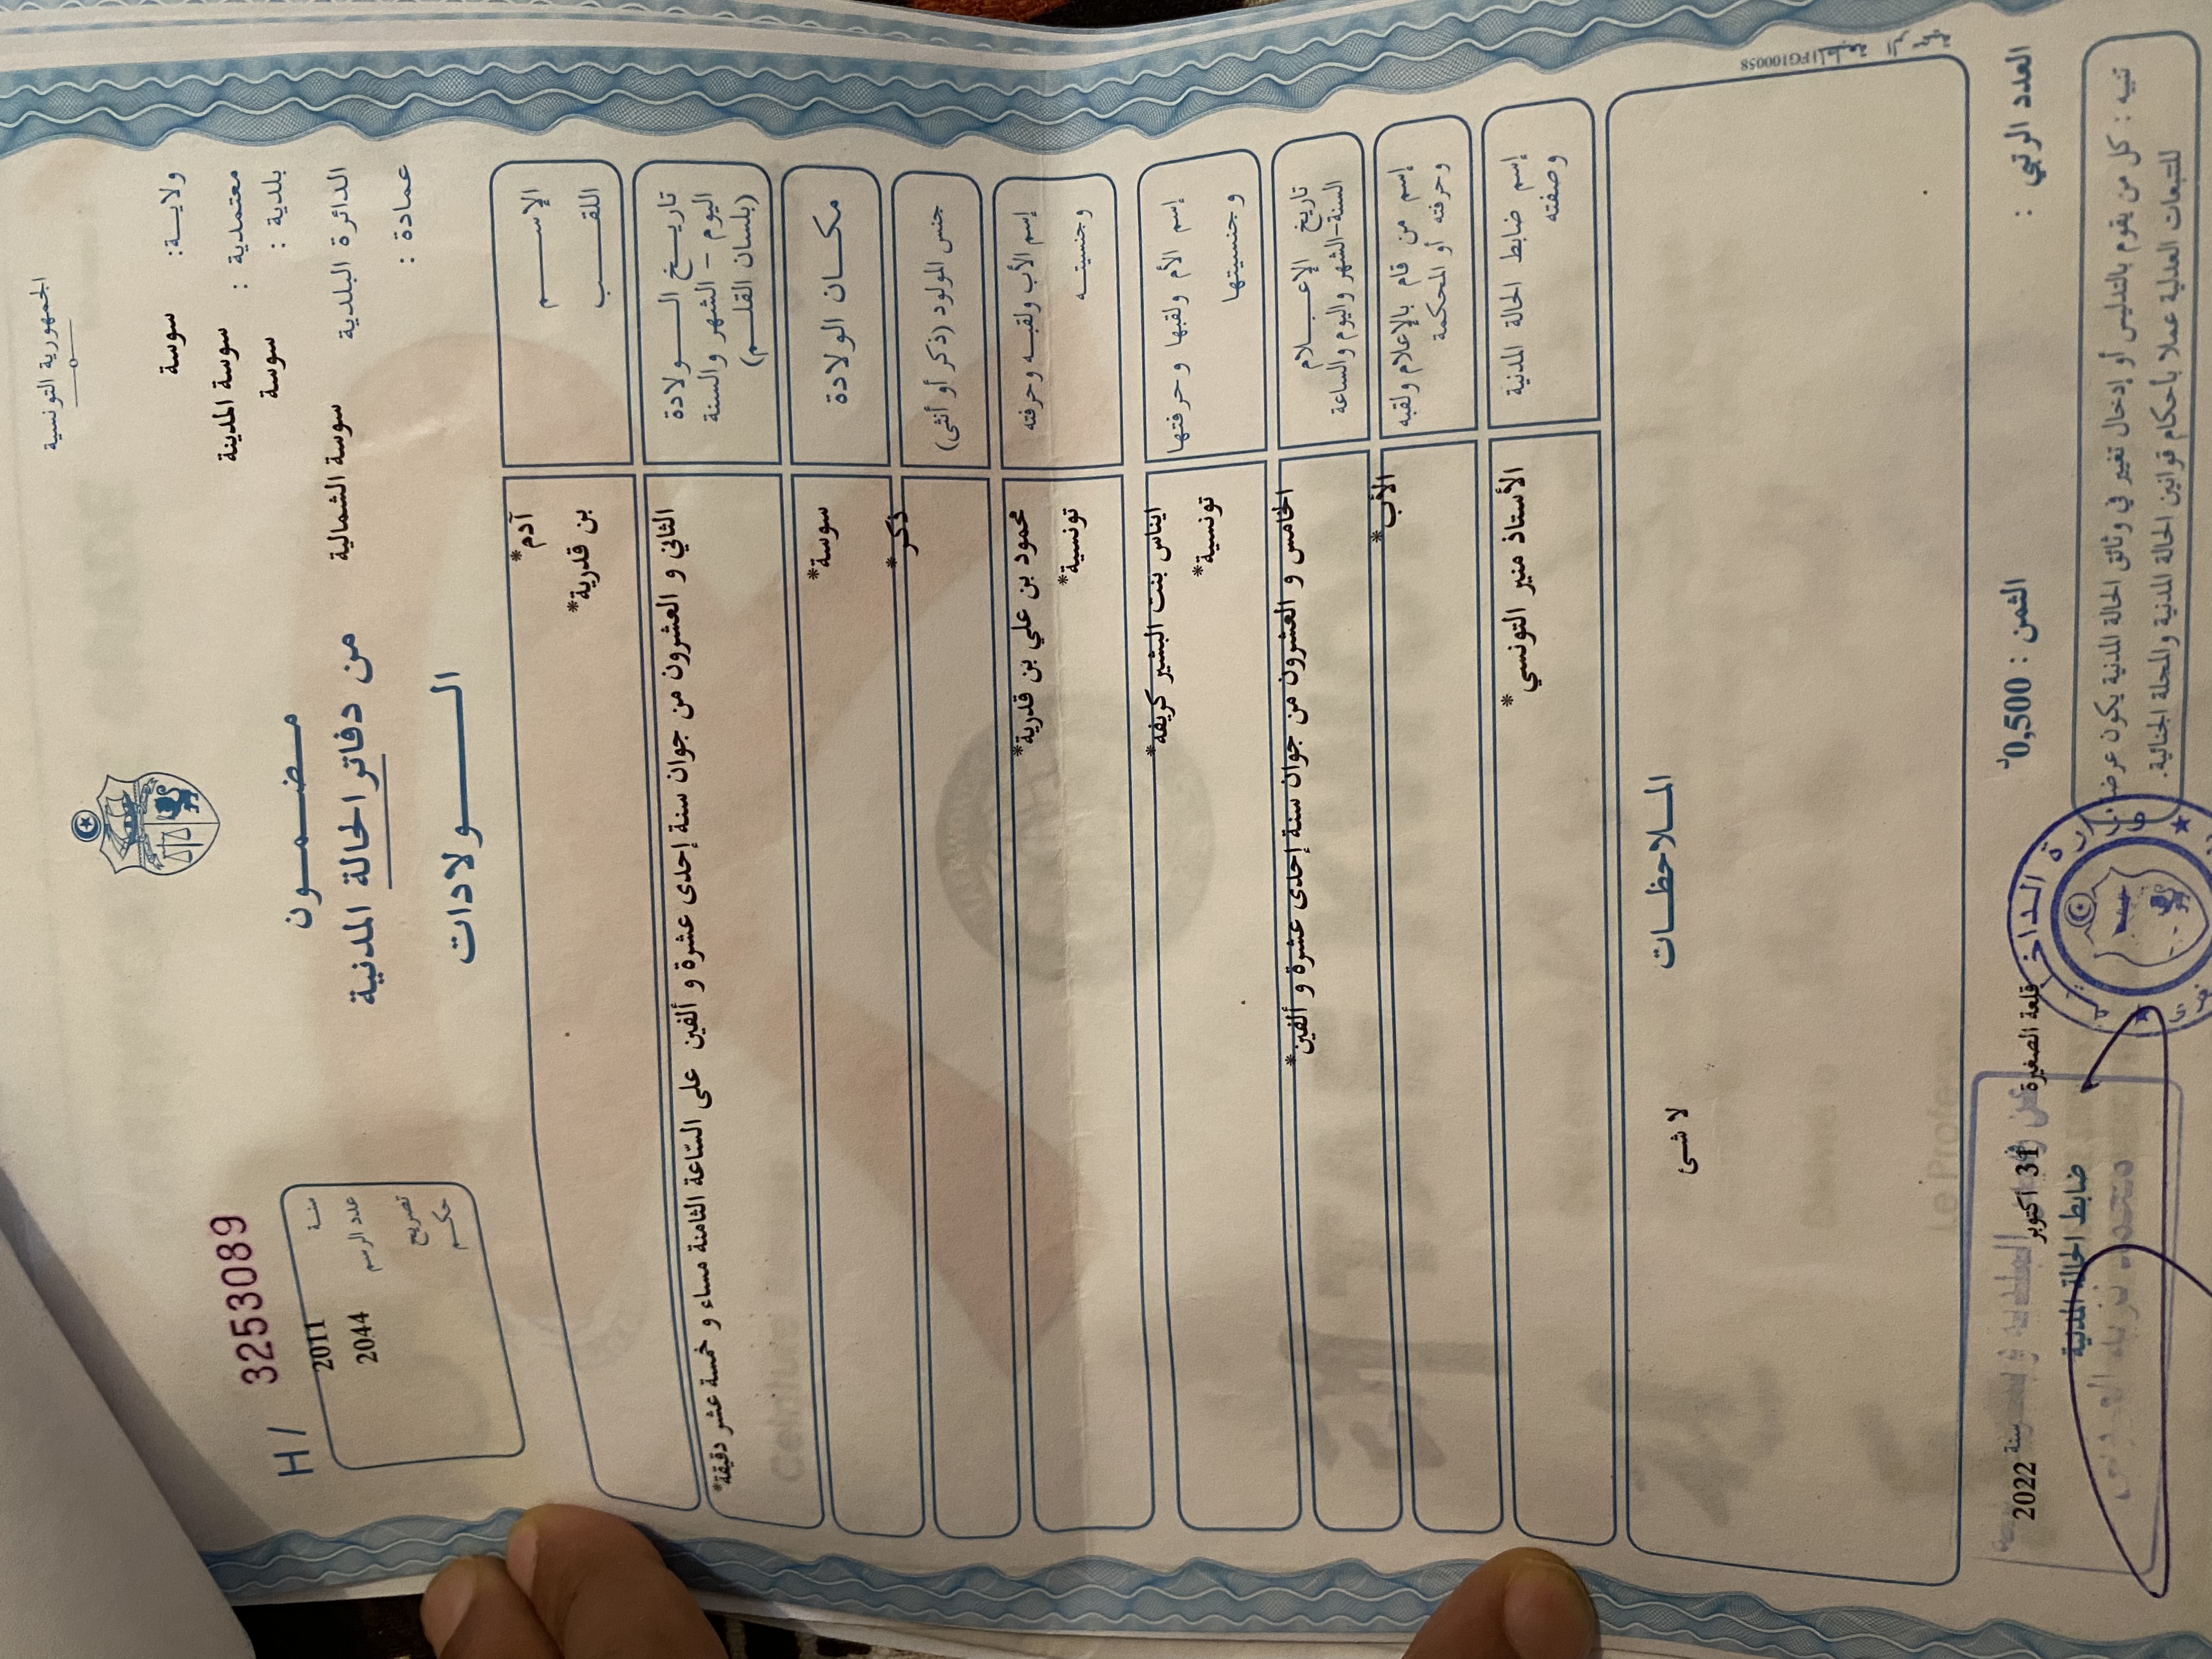 الجمهورية التونسية
ولاية: سوسة
معتمدية : سوسة المدينة
بلدية : سوسة
الدائرة البلدية سوسة الشمالية
عمادة :
مضمون
من دفاتر الحالة المدنية
الولادات
H / 32253089
سنة 2011
عدد الرسم 2044
تصريح
حكم
الإسم آدم*
اللقب بن قدرية*
تاريخ الولادة الثاني و العشرون من جوان سنة إحدى عشرة و ألفين على السّاعة الثامنة مساء و خمسة عشر دقيقة*
اليوم - الشهر والسنة
(بلسان القلم)
مكان الولادة سوسة*
جنس المولود (ذكر أو أنثى) ذكر*
إسم الأب ولقبه وحرفته محمود بن علي بن قدرية*
وجنسيته تونسية*
إسم الأم ولقبها وحرفتها ايناس بنت البشير كريفه*
وجنسيتها تونسية*
تاريخ الإعلام الخامس و العشرون من جوان سنة إحدى عشرة و ألفين*
السنة-الشهر واليوم والساعة
إسم من قام بالإعلام ولقبه الأب*
وحرفته أو المحكمة
إسم ضابط الحالة المدنية الأستاذ منير التونسي*
وصفته
الملاحظات
لا شئ
العدد الرتبي :
الثمن : 0,500د
قلعة الصغيرة 31 أكتوبر سنة 2022
ضابط الحالة المدنية
تنبيه : كل من يقوم بالتدليس أو إدخال تغيير في وثائق الحالة المدنية يكون عرضة
للتتبعات العدلية عملا بأحكام قوانين الحالة المدنية والمجلة الجنائية.